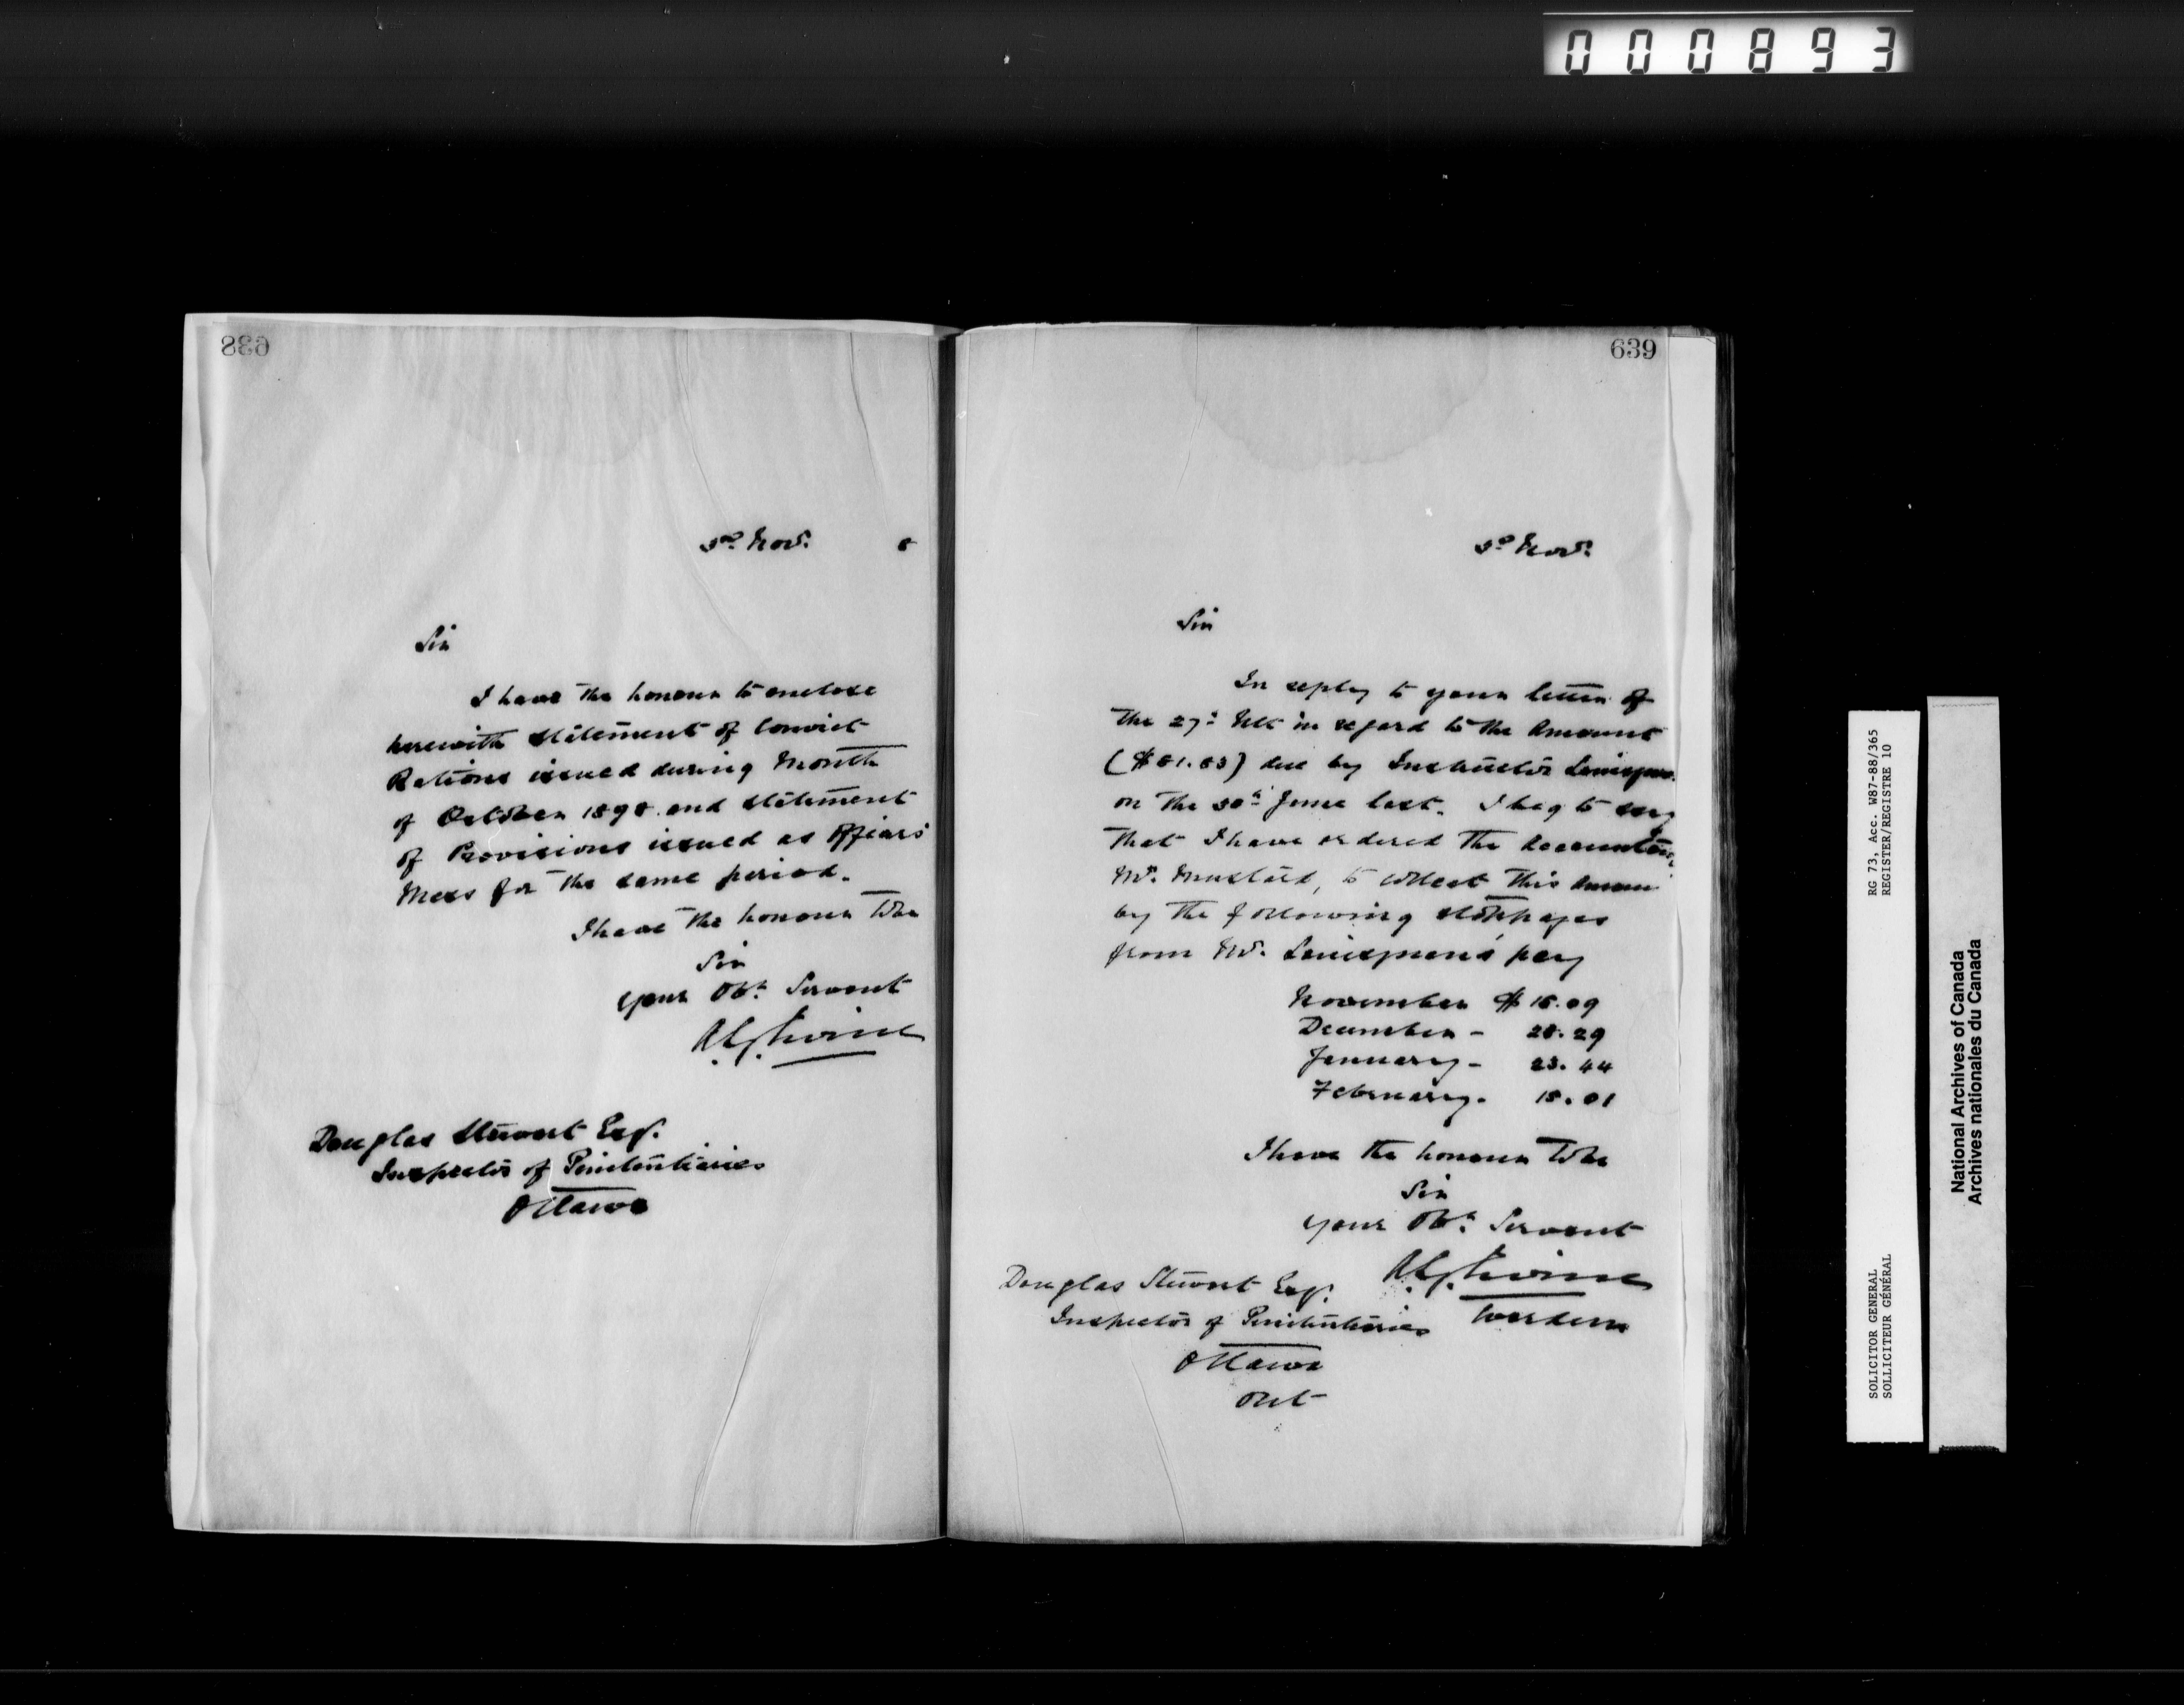 000893
638
3rd Nov. 8
Sir
I have the honour to enclose
herewith statement of Convict
Rations issued during Month
of October 1898 and statement
of Provisions issued as Officers'
Mess for the same period.
I have the honour to be
Sir
your Obt. Servant
A G Irvine
Douglas Stewart Esq.
Inspector of Penitentiaries
Ottawa
639
3rd Nov.
Sir
In reply to your letter of
the 27th Ult in regard to the Amount
($81.83) due by Instructor
on the 30th June last. I beg to say
that I have ordered the Accountant
Mr. Mustard, to collect this Amount
by the following stoppages
from Mr. pay
November $ 15.09
December - 28.29
January - 23.44
February - 15.01
I have the honour to be
Sir
your Obt. Servant
A G Irvine
Warden
Douglas Stewart Esq.
Inspector of Penitentiaries
Ottawa
Ont
RG 73, Acc. W87-88/365
REGISTER/REGISTRE 10
SOLICITOR GENERAL
SOLLICITEUR GÉNÉRAL
National Archives of Canada
Archives nationales du Canada